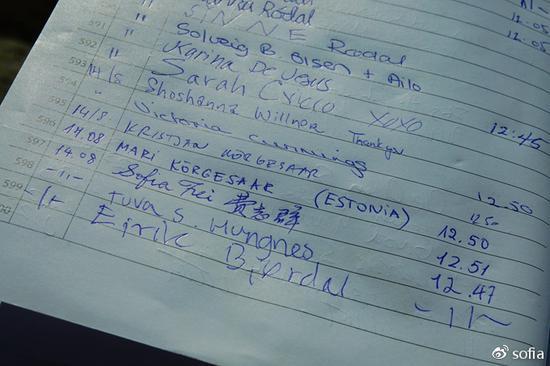 Rodal 12.05
591 " SINNE Rodal 12.05
592 " Solveig B Olsen + Ailo
593 " Karina De Jesus
14/8 Sarah XOXO 12:45
595 " Shoshanna Willner Thankyou
14/8 Victoria Cummings 12.50
597 14.08 KRISTJAN KÕRGESAAR 12.50
598 14.08 MARI KÕRGESAAR (ESTONIA) 12.50
599 -11- Sofia Fei 12.51
-11- Tuva S. Hungnes 12.47
Eirik Bjørdal -11-
sofia